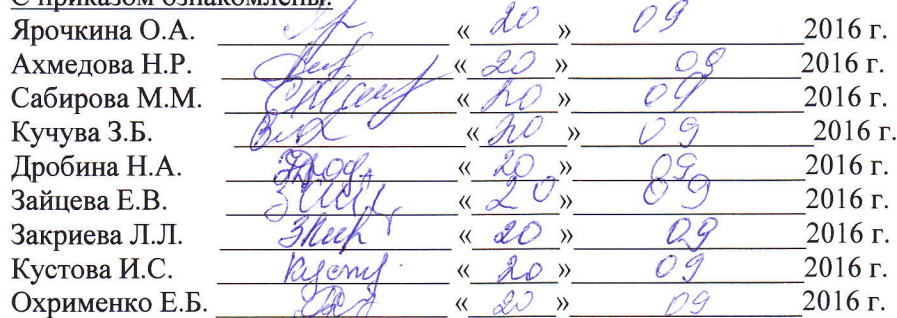 С приказом ознакомлены:
Ярочкина О.А. « 20 » 09 2016 г.
Ахмедова Н.Р. « 20 » 09 2016 г.
Сабирова М.М. « 20 » 09 2016 г.
Кучува З.Б. « 20 » 09 2016 г.
Дробина Н.А. « 20 » 09 2016 г.
Зайцева Е.В. « 20 » 09 2016 г.
Закриева Л.Л. « 20 » 09 2016 г.
Кустова И.С. « 20 » 09 2016 г.
Охрименко Е.Б. « 20 » 09 2016 г.